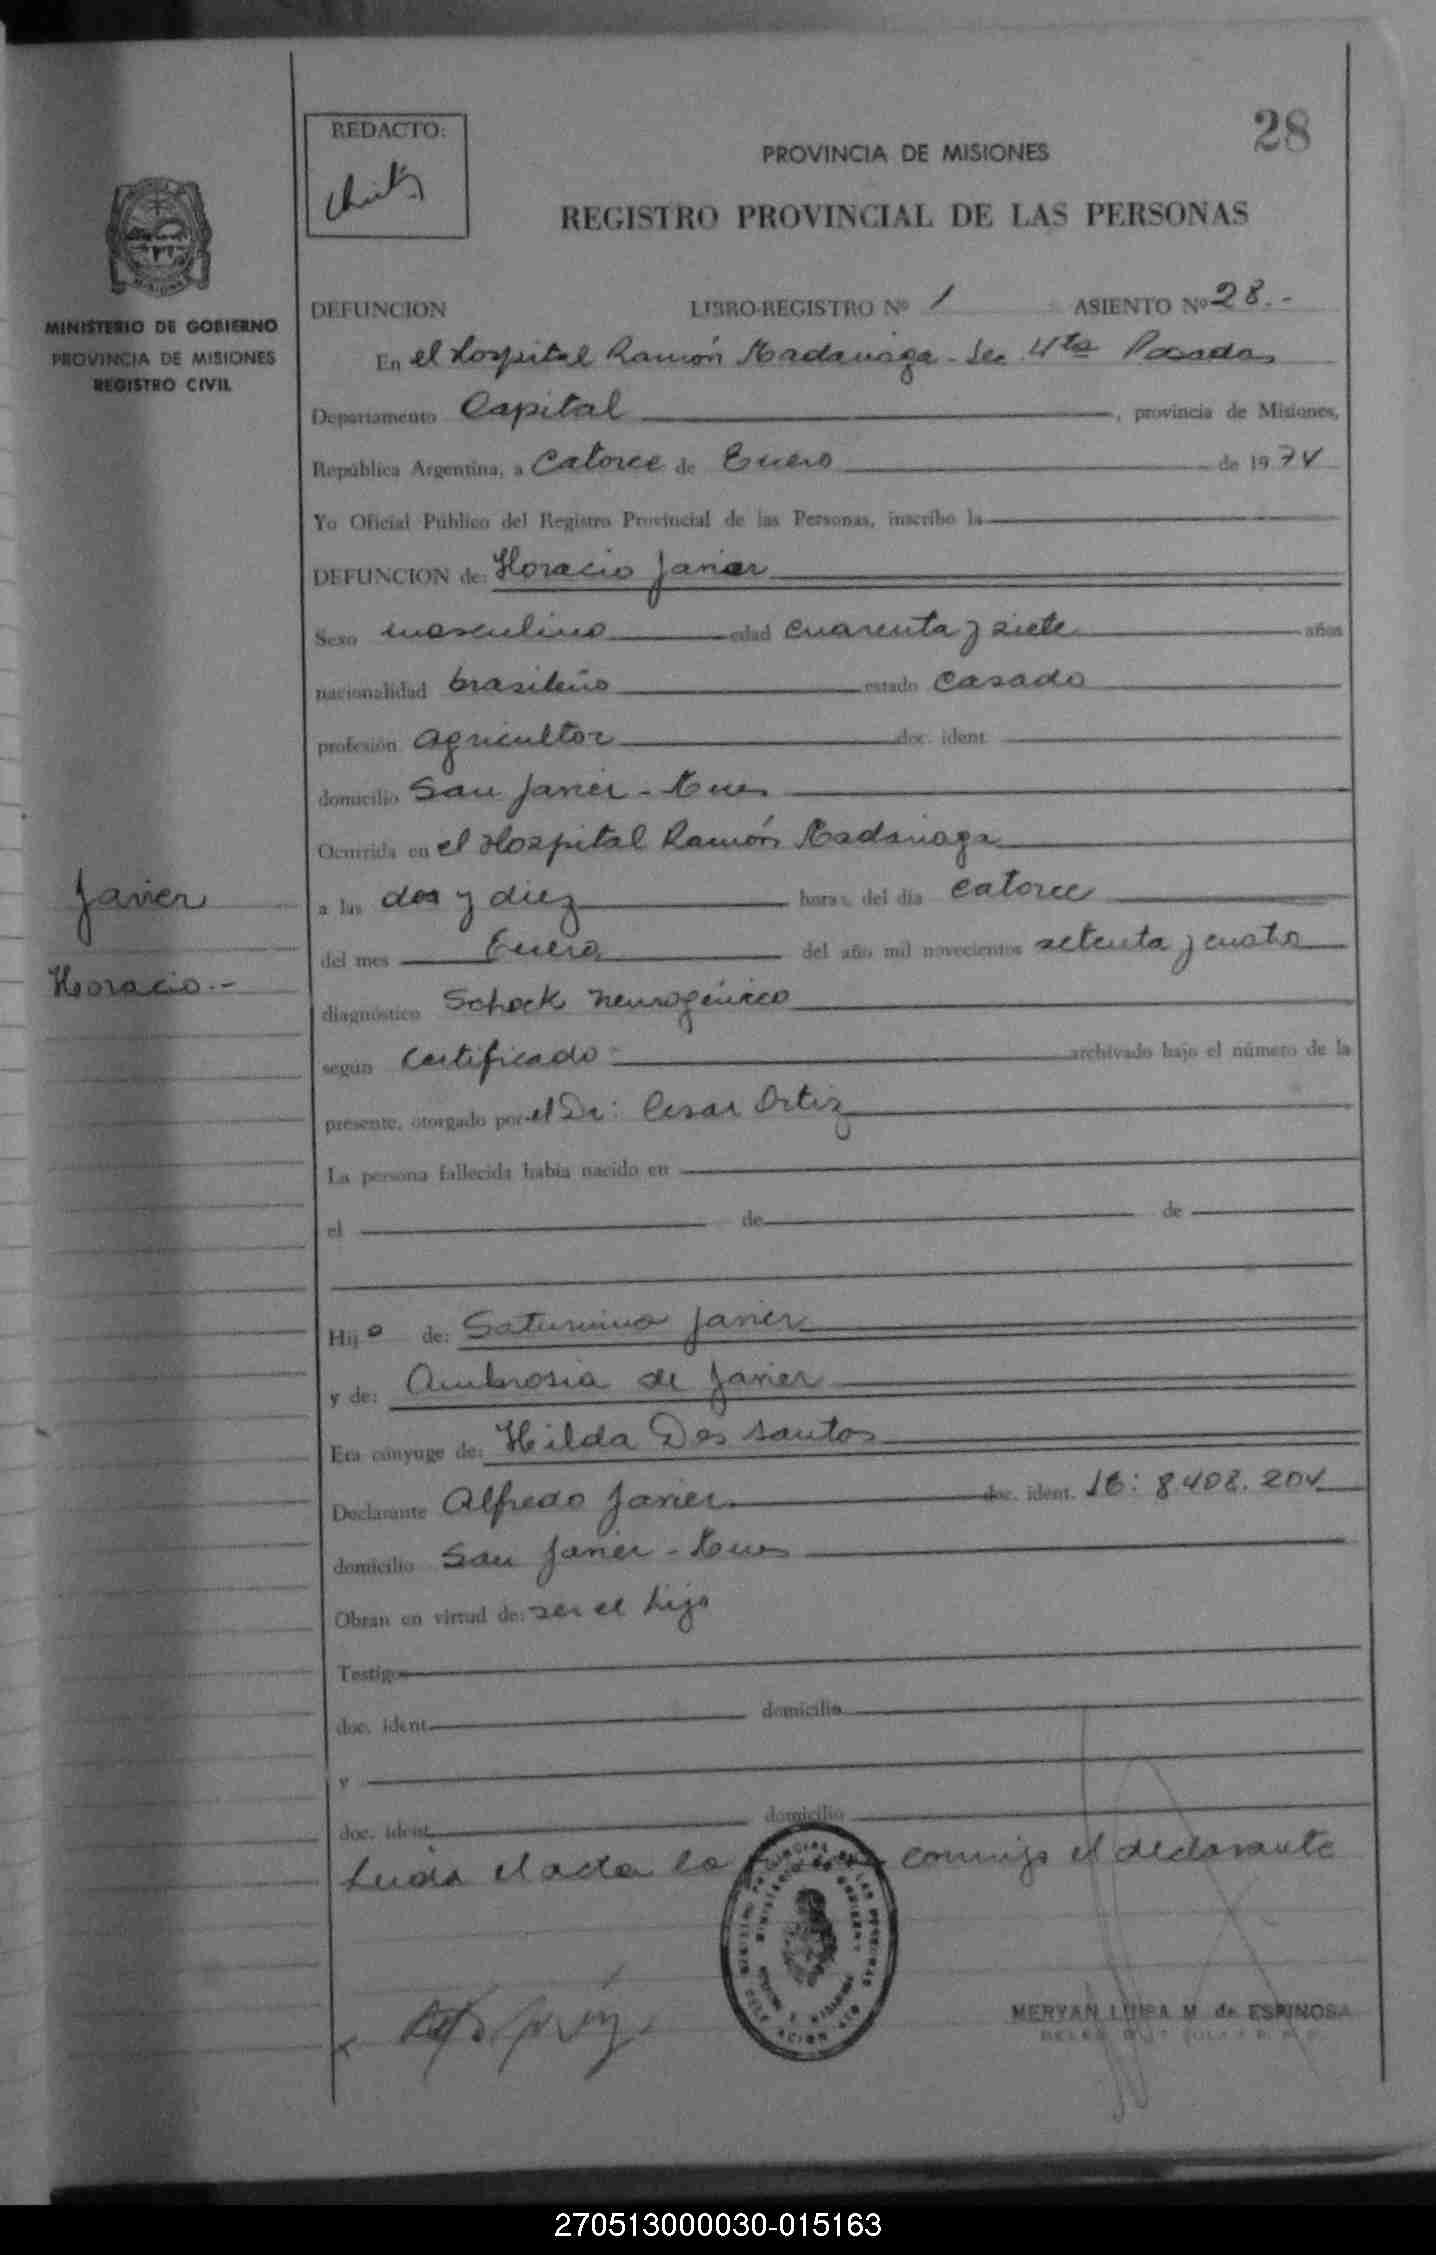 28
REDACTO:
PROVINCIA DE MISIONES
REGISTRO PROVINCIAL DE LAS PERSONAS
MINISTERIO DE GOBIERNO
PROVINCIA DE MISIONES
REGISTRO CIVIL
DEFUNCION LIBRO-REGISTRO Nº 1 ASIENTO Nº 28.-
En el Hospital Ramón Madariaga - Sec 4ta Posadas
Departamento Capital, provincia de Misiones,
República Argentina, a Catorce de Enero de 1974
Yo Oficial Público del Registro Provincial de las Personas, inscribo la
DEFUNCION de: Horacio Javier
Sexo masculino edad cuarenta y siete años
nacionalidad brasileño estado Casado
profesión agricultor doc. ident.
domicilio San Javier - Mnes
Ocurrida en el Hospital Ramón Madariaga
Javier
a las dos y diez horas del día catorce
del mes Enero del año mil novecientos setenta y cuatro
Horacio.-
diagnóstico Schock neurogénico
según Certificado archivado bajo el número de la
presente, otorgado por el Dr: Cesar Ortiz
La persona fallecida había nacido en
el de de
Hijo de: Saturnino Javier
y de: Ambrosia de Javier
Era cónyuge de: Hilda Dos Santos
Declarante Alfredo Javier doc. ident. 8.408.204
domicilio San Javier - Mnes
Obran en virtud de: ser el hijo
Testigos
doc. ident. domicilio
y
doc. ident. domicilio
Leida el acta la conmigo el declarante
MERYAN LUISA M. de ESPINOSA
270513000030-015163